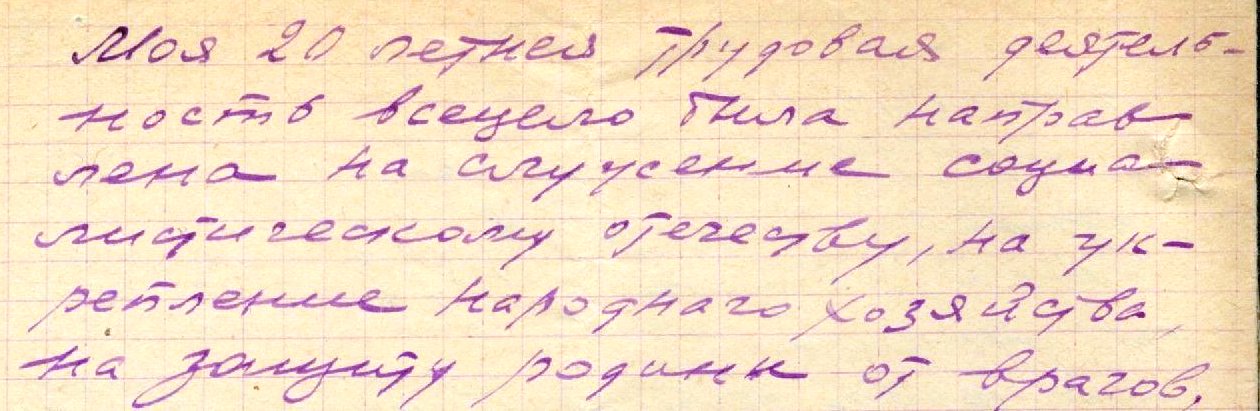 Моя 20 летнея трудовая деятель-
ность всецело была направ
лена на служение социа-
листическому отечеству, на ук-
репление народнаго хозяйства,
на защиту родины от врагов,